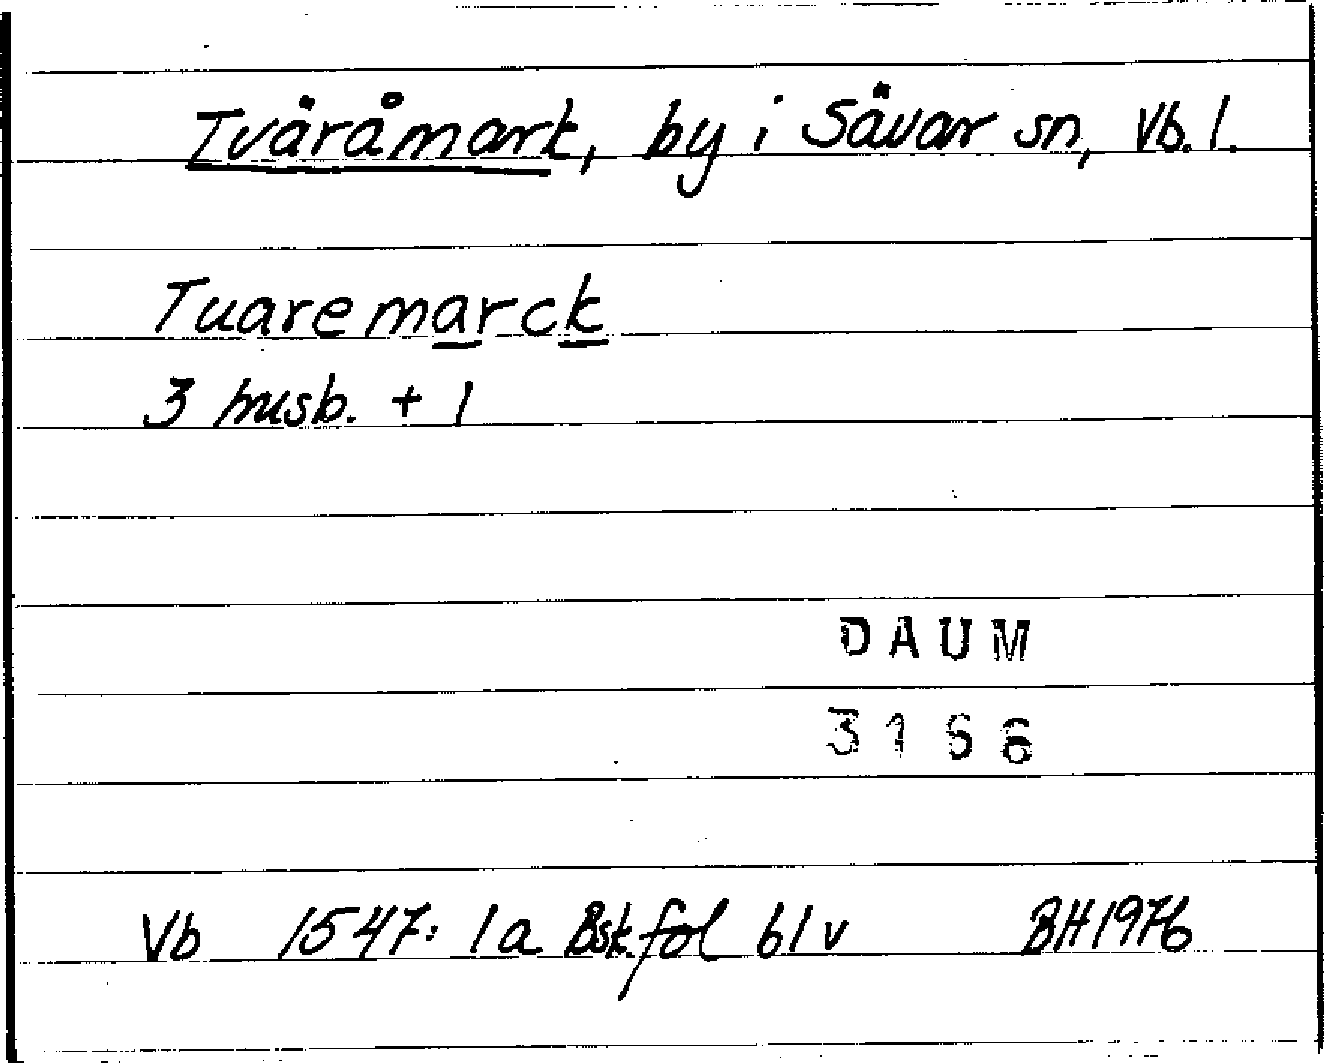 Tväråmark, by i Sävar sn, Vb. l.
Tuaremarck
3 husb. + 1
DAUM
3166
Vb 1547: 1a Bsk. fol 61v BH1976